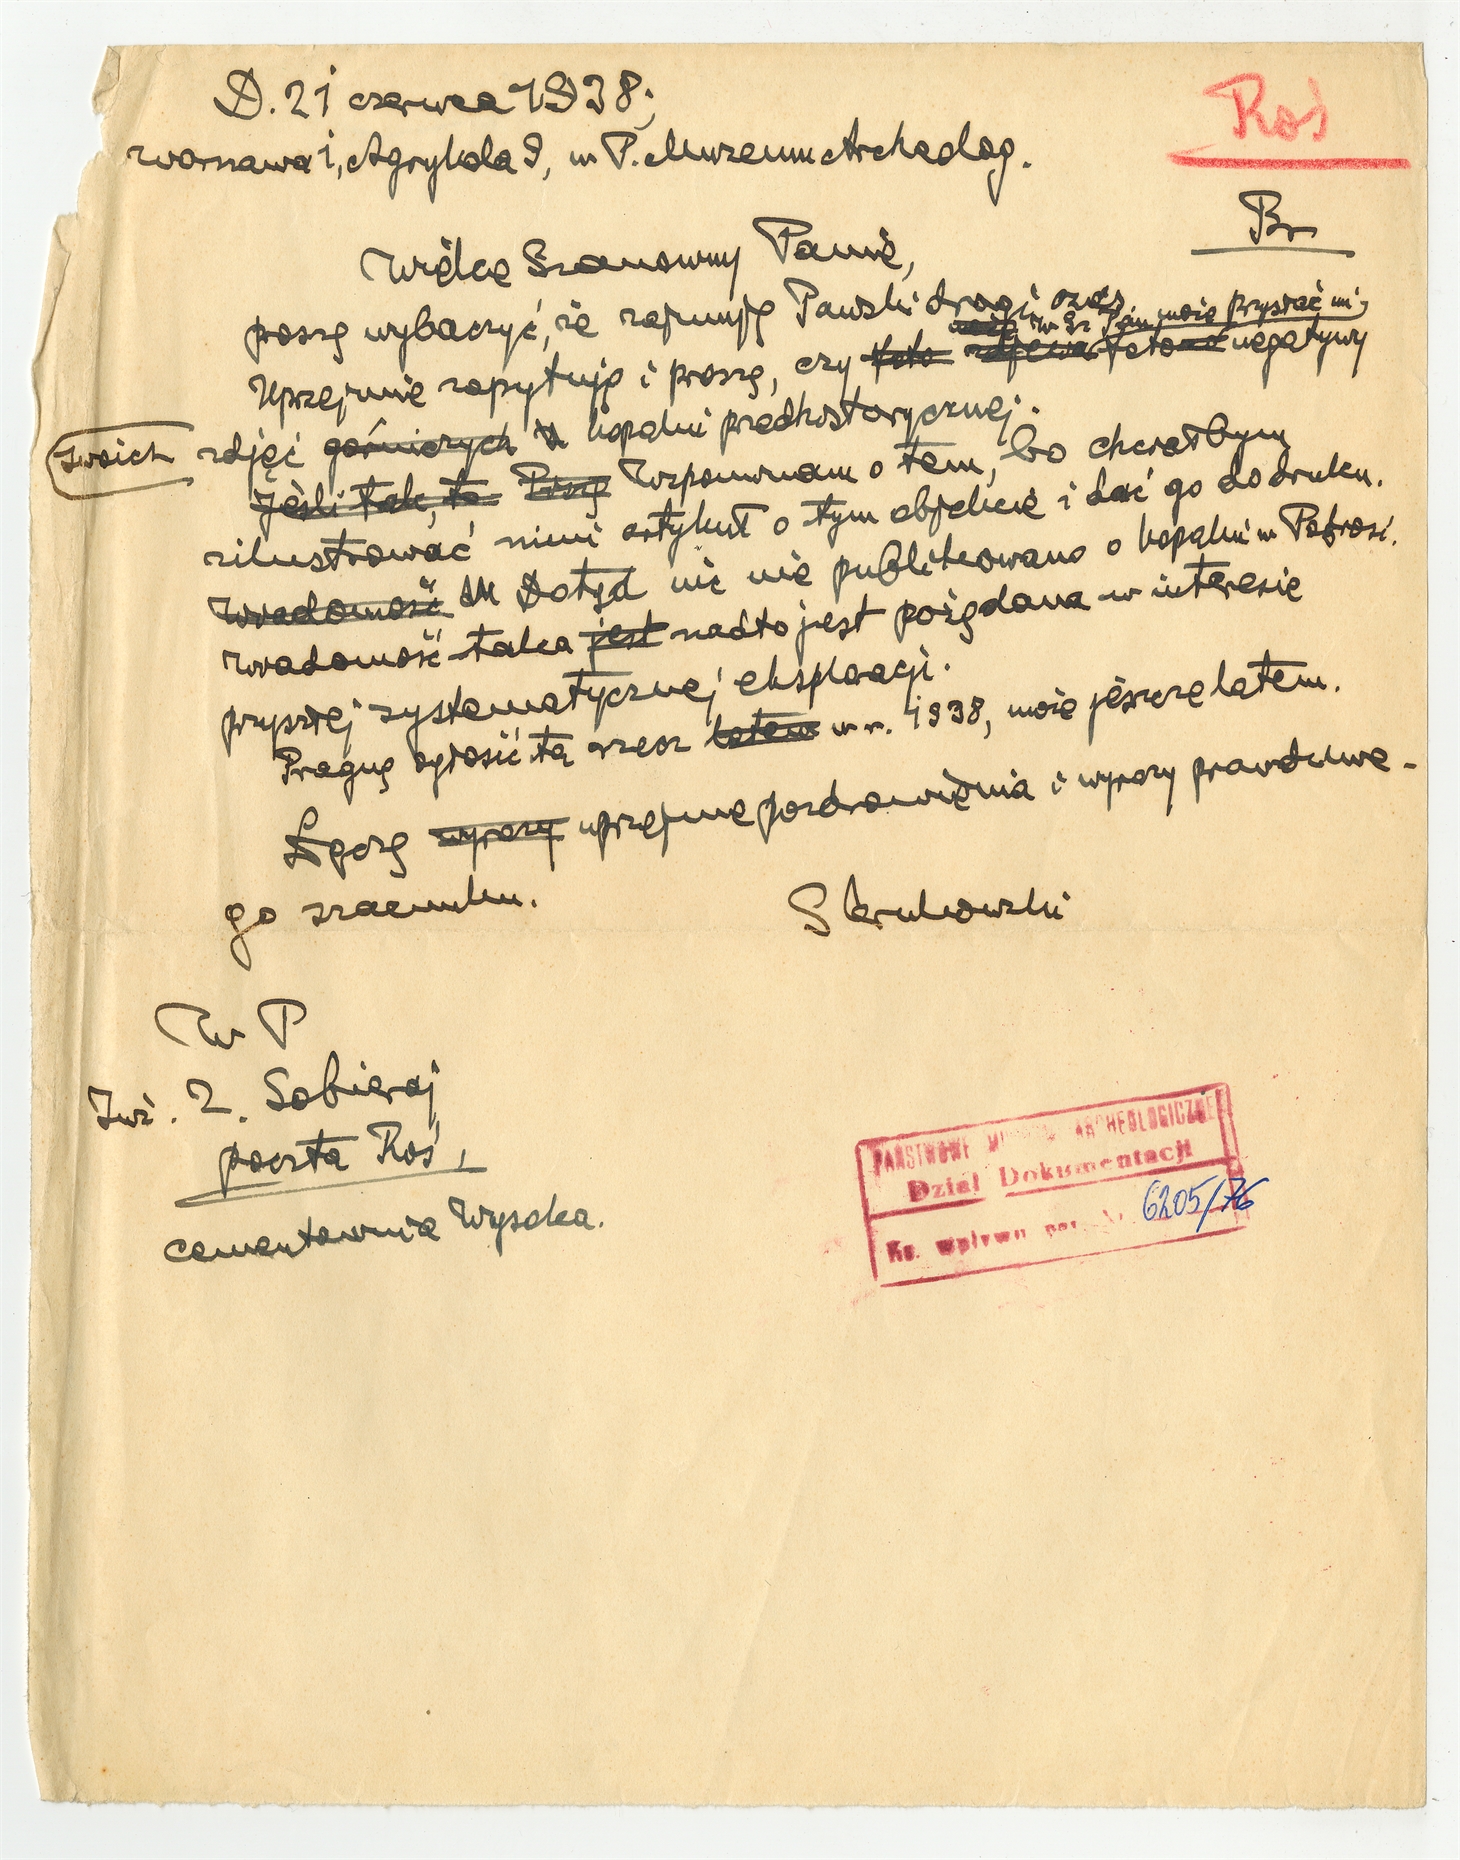 D. 21 czerwca 1938;
Warszawa 1, Agrykola 9, w P. Muzeum Archeolog.
Roś
Br
Wielce Szanowny Panie,
proszę wybaczyć, że zajmuję Pański drogi czas
W Sz Pan może przysłać mi
Uprzejmie zapytuję i proszę, czy foto zdjęcia foto negatywy
swoich zdjęć górniczych z kopalni predhistorycznej.
Jeśli tak, to Proszę Wspominam o tem, bo chciałbym
zilustrować niemi artykuł o tym objekcie i dać go do druku.
Wiadomość Dotąd nic nie publikowano o kopalni w Potrosi.
Wiadomość taka jest nadto jest pożądana w interesie
przyszłej systematycznej eksploracji.
Pragnę ogłosić tą rzecz latem w r. 1938, może jeszcze latem.
Łączę wyrazy uprzejme pozdrowienia i wyrazy prawdziwe-
go szacunku.
S Krukowski
W P
Inż. Z. Sobieraj
poczta Roś,
cementownia Wysoka.
PAŃSTWOWE MUZEUM ARCHEOLOGICZNE
Dział Dokumentacji
Ks. wpływu poz. Nr 6205/76